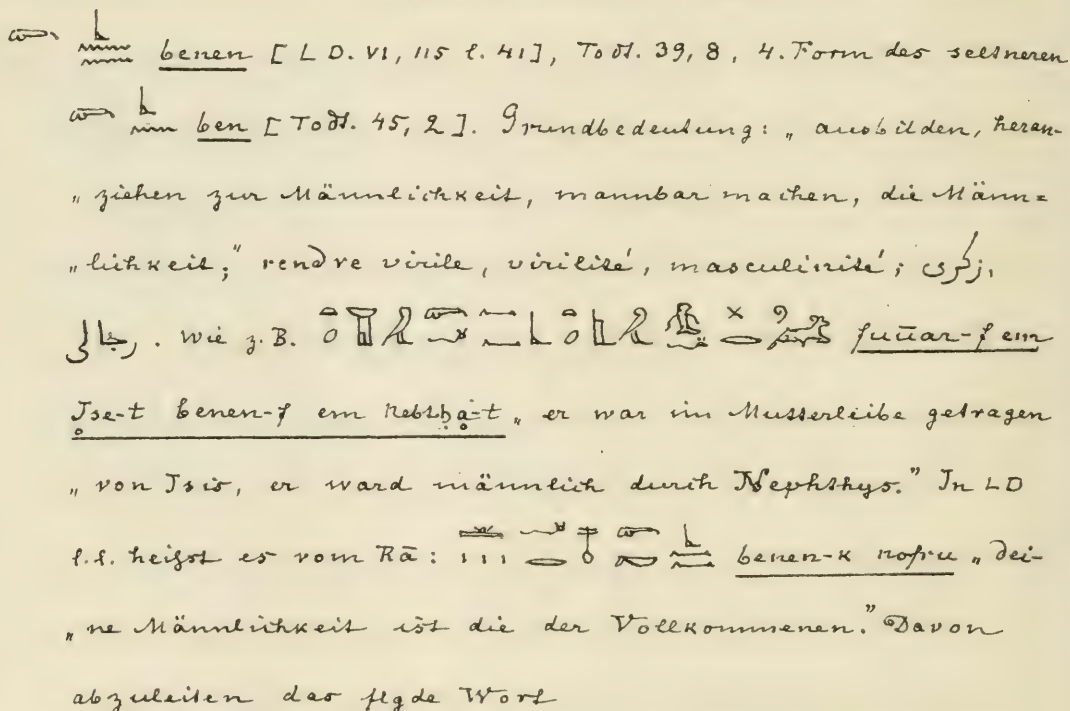 benen [LD. VI, 115 l. 41], Todt. 39, 8, 4. Form des seltneren
ben [Todt. 45, 2]. Grundbedeutung: „ausbilden, heran-
„ziehen zur Männlichkeit, mannbar machen, die Männ-
„lichkeit;" rendre virile, virilité, masculinité; زكرى,
رجالى. Wie z. B. -f em
Ise-t benen-f em „er war im Mutterleibe getragen
„von Isis, er ward männlich durch Nephthys." In LD
l. l. heifst es vom Rā: benen-k nofru „dei-
„ne Männlichkeit ist die der Vollkommenen." Davon
abzuleiten das flgde Wort